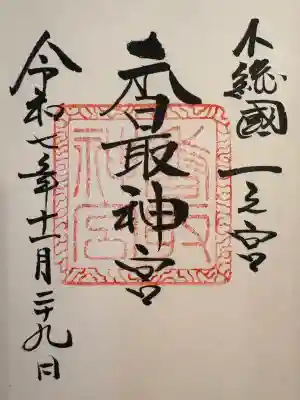 下総國一之宮
香取神宮
令和七年十一月二十九日
香取
神宮